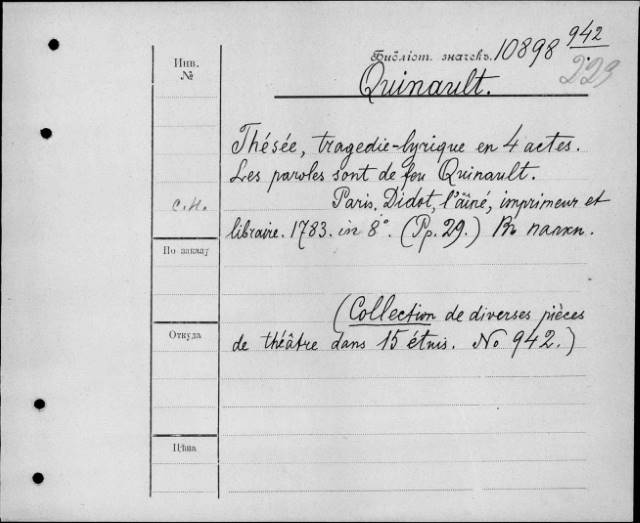 Инв.
№
Библіот. значекъ. 10898 942
223
Quinault.
Thésée, tragedie-lyrique en 4 actes.
Les paroles sont de feu Quinault.
С.Н.
Paris. Didot, l'aîné, imprimeur et
libraire. 1783. in 8°. (Pp. 29.) Въ папки.
По заказу
(Collection de diverses pièces
Откуда
de théâtre dans 15 étuis. No 942.)
Цѣна